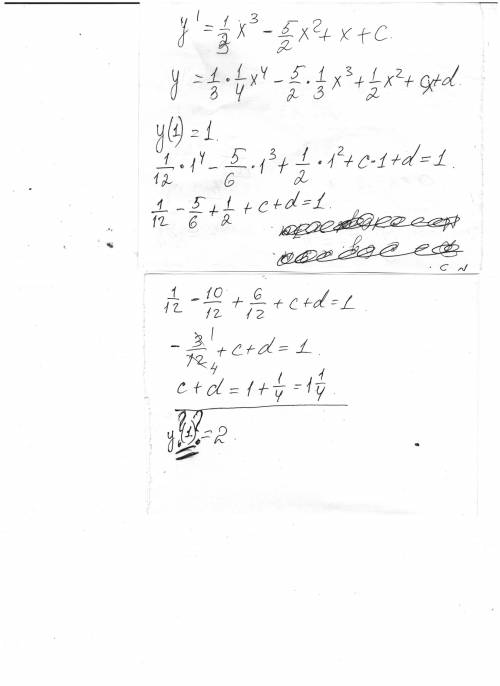 y' = 1/3 x³ - 5/2 x² + x + C.
y = 1/3 · 1/4 x⁴ - 5/2 · 1/3 x³ + 1/2 x² + cx + d.
y(1) = 1.
1/12 · 1⁴ - 5/6 · 1³ + 1/2 · 1² + c · 1 + d = 1.
1/12 - 5/6 + 1/2 + c + d = 1.
1/12 - 10/12 + 6/12 + c + d = 1
- 3 1/12 4 + c + d = 1.
c + d = 1 + 1/4 = 1 1/4.
y?(1)? = 2.